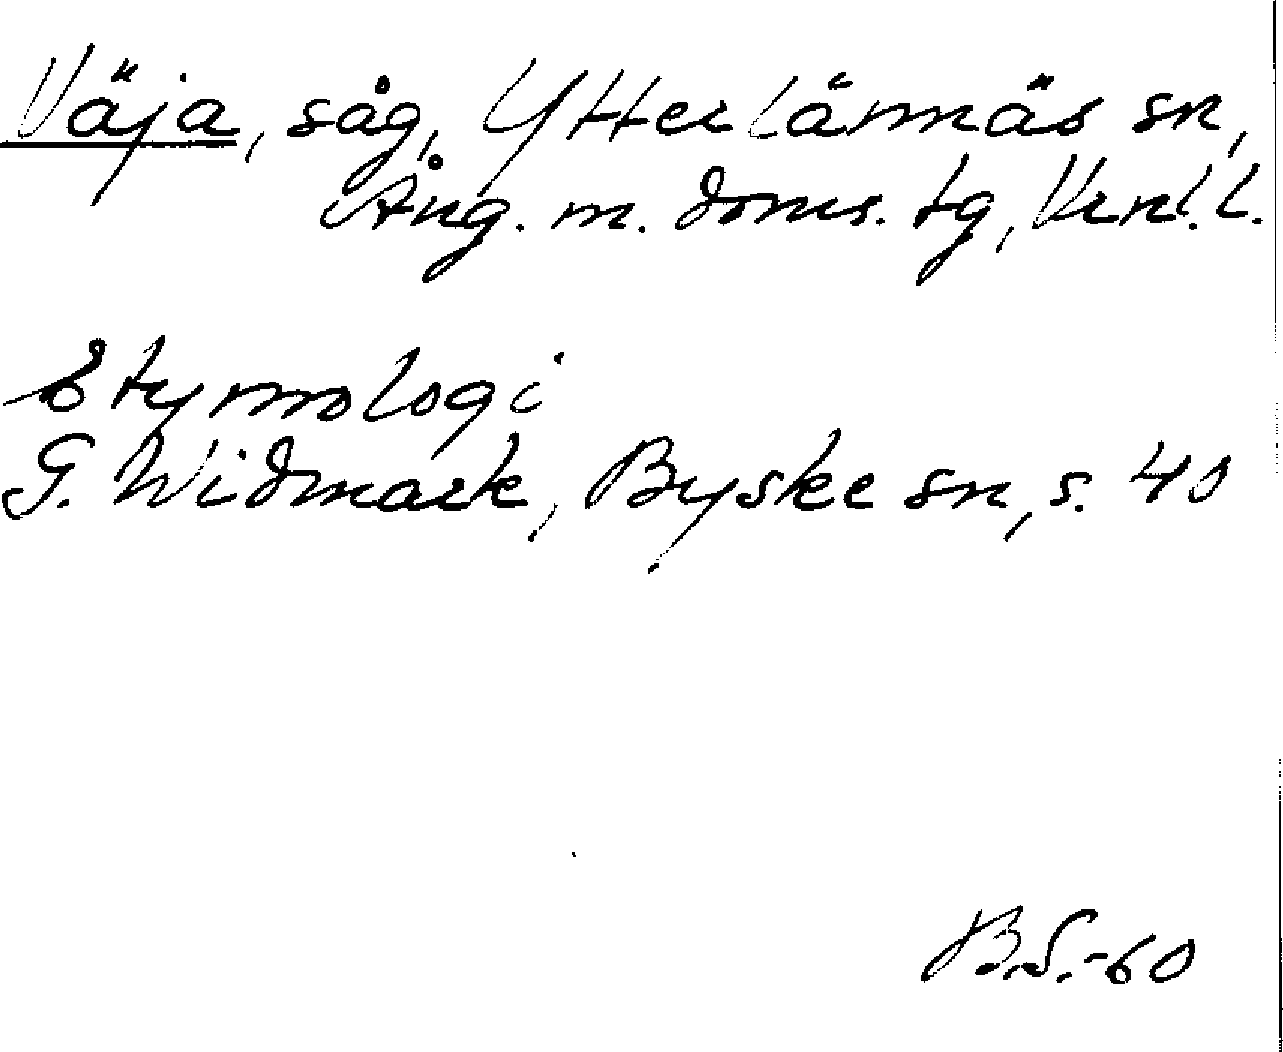 Väja, såg, Ytterlännäs sn,
Ång. m. doms. tg, Vrnl. l.
Etymologi
G. Widmark, Byske sn, s. 40
B.S.-60